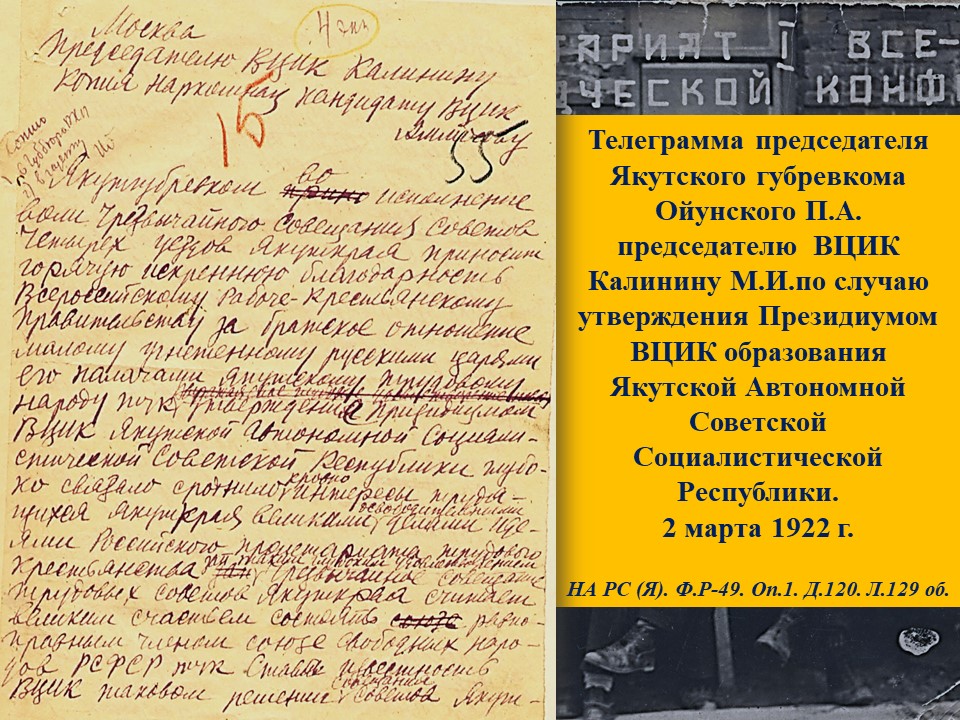 Москва
4 экз
Председателю ВЦИК Калинину
Копия Наркомнац кандидату ВЦИК
15
55
Якутгубревком во исполнение
воли Чрезвычайного Совещания Советов
Четырех уездов Якуткрая приносит
горячую искреннюю благодарность
Всероссийскому Рабоче-Крестьянскому
Правительству за братское отношение
малому угнетенному русскими царями
его палачами Якутскому трудовому
народу тчк утверждения Президиумом
ВЦИК Якутской Автономной Социали-
стической Советской Республики глубо-
ко связало сроднило кровно интересы трудя-
щихся Якуткрая великими освободительными идеями
Российского пролетариата трудового
крестьянства Чрезвычайное совещание
трудовых советов Якуткрая считает
великим счастьем состоять союза равно-
правным членом союза свободных наро-
дов РСФСР тчк Ставя известность
ВЦИК таковом решении совещание советов Якут-
АРИАТ I ВСЕ-
ЧЕСКОЙ КОНФ
Телеграмма председателя
Якутского губревкома
Ойунского П.А.
председателю ВЦИК
Калинину М.И.по случаю
утверждения Президиумом
ВЦИК образования
Якутской Автономной
Советской
Социалистической
Республики.
2 марта 1922 г.
НА РС (Я). Ф.Р-49. Оп.1. Д.120. Л.129 об.